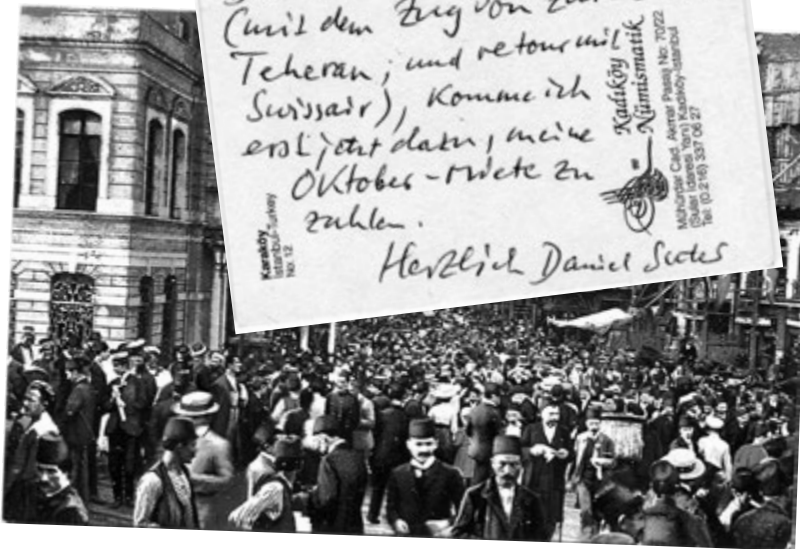 (mit dem Zug von
Teheran, und retour mit
Swissair), komme ich
erst jetzt dazu, meine
Oktober-Miete zu
zahlen.
Herzlich Daniel Suter
Karaköy
Istanbul-Turkey
No: 12
Kadıköy
Nümismatik
Mühürdar Cad. Akmar Pasajı No: 70/22
(Sular İdaresi Yanı) Kadıköy-İstanbul
Tel: (0.216) 337 06 27